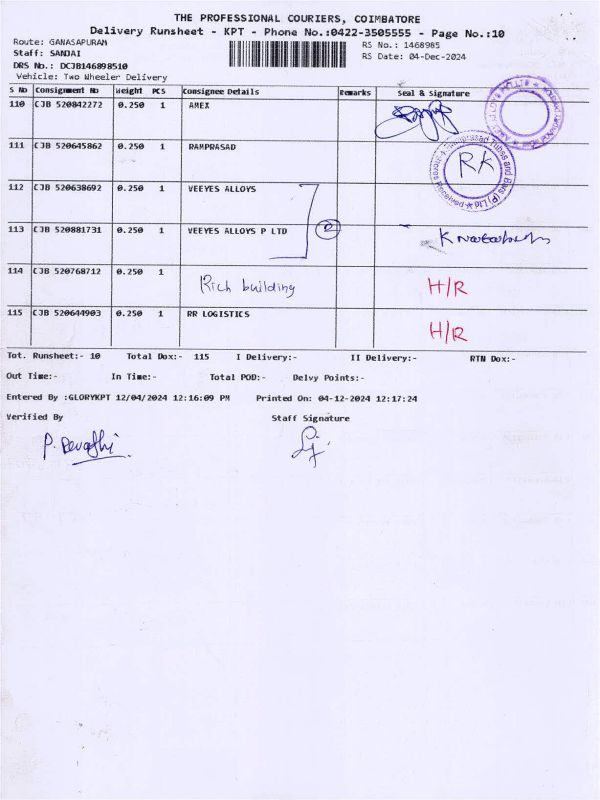 THE PROFESSIONAL COURIERS, COIMBATORE
Delivery Runsheet - KPT - Phone No.:0422-3505555 - Page No.:10
Route: GANASAPURAM
RS No.: 1468985
Staff: SANJAI
RS Date: 04-Dec-2024
DRS No.: DCJB146898510
Vehicle: Two Wheeler Delivery
S No Consignment No Weight PCS Consignee Details Remarks Seal & Signature
110 CJB 520842272 0.250 1 AMEX
111 CJB 520645862 0.250 1 RAMPRASAD
RK
112 CJB 520638692 0.250 1 VEEYES ALLOYS
113 CJB 520881731 0.250 1 VEEYES ALLOYS P LTD 2
114 CJB 520768712 0.250 1 Rich building H/R
115 CJB 520644903 0.250 1 RR LOGISTICS H/R
Tot. Runsheet:- 10 Total Dox:- 115 I Delivery:- II Delivery:- RTN Dox:-
Out Time:- In Time:- Total POD:- Delvy Points:-
Entered By :GLORYKPT 12/04/2024 12:16:09 PM Printed On: 04-12-2024 12:17:24
Verified By Staff Signature